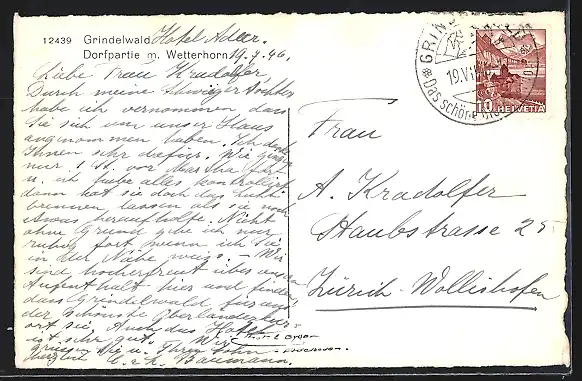 12439 Grindelwald Hotel Adler.
Dorfpartie m. Wetterhorn 19.7.46.
Liebe Frau Kradolfer,
Durch meine Schwiegertochter
habe ich vernommen dass
Sie sich von unser Haus
angenommen haben. Ich danke
Ihnen sehr dafür. Wir gingen
nur 1 St. vor Martha fort
u. ich habe alles kontrolliert
dann hat sie doch das Licht
brennen lassen als sie noch
etwas heraufholte. Nicht
ohne Grund gebe ich nur
ruhig fort wenn ich Sie
in der Nähe weiss. – Wir
sind hocherfreut über unsern
Aufenthalt hier und finden,
dass Grindelwald für uns
der schönste Oberländer
ort sei. Auch das Hotel
ist sehr gut. Wir
grüssen Sie u. Ihren Sohn
herzlich Baumann.
GRINDELWALD
19.VII
Das schöne
10 HELVETIA
Frau
A. Kradolfer
Staubstrasse 25
Zürich-Wollishofen